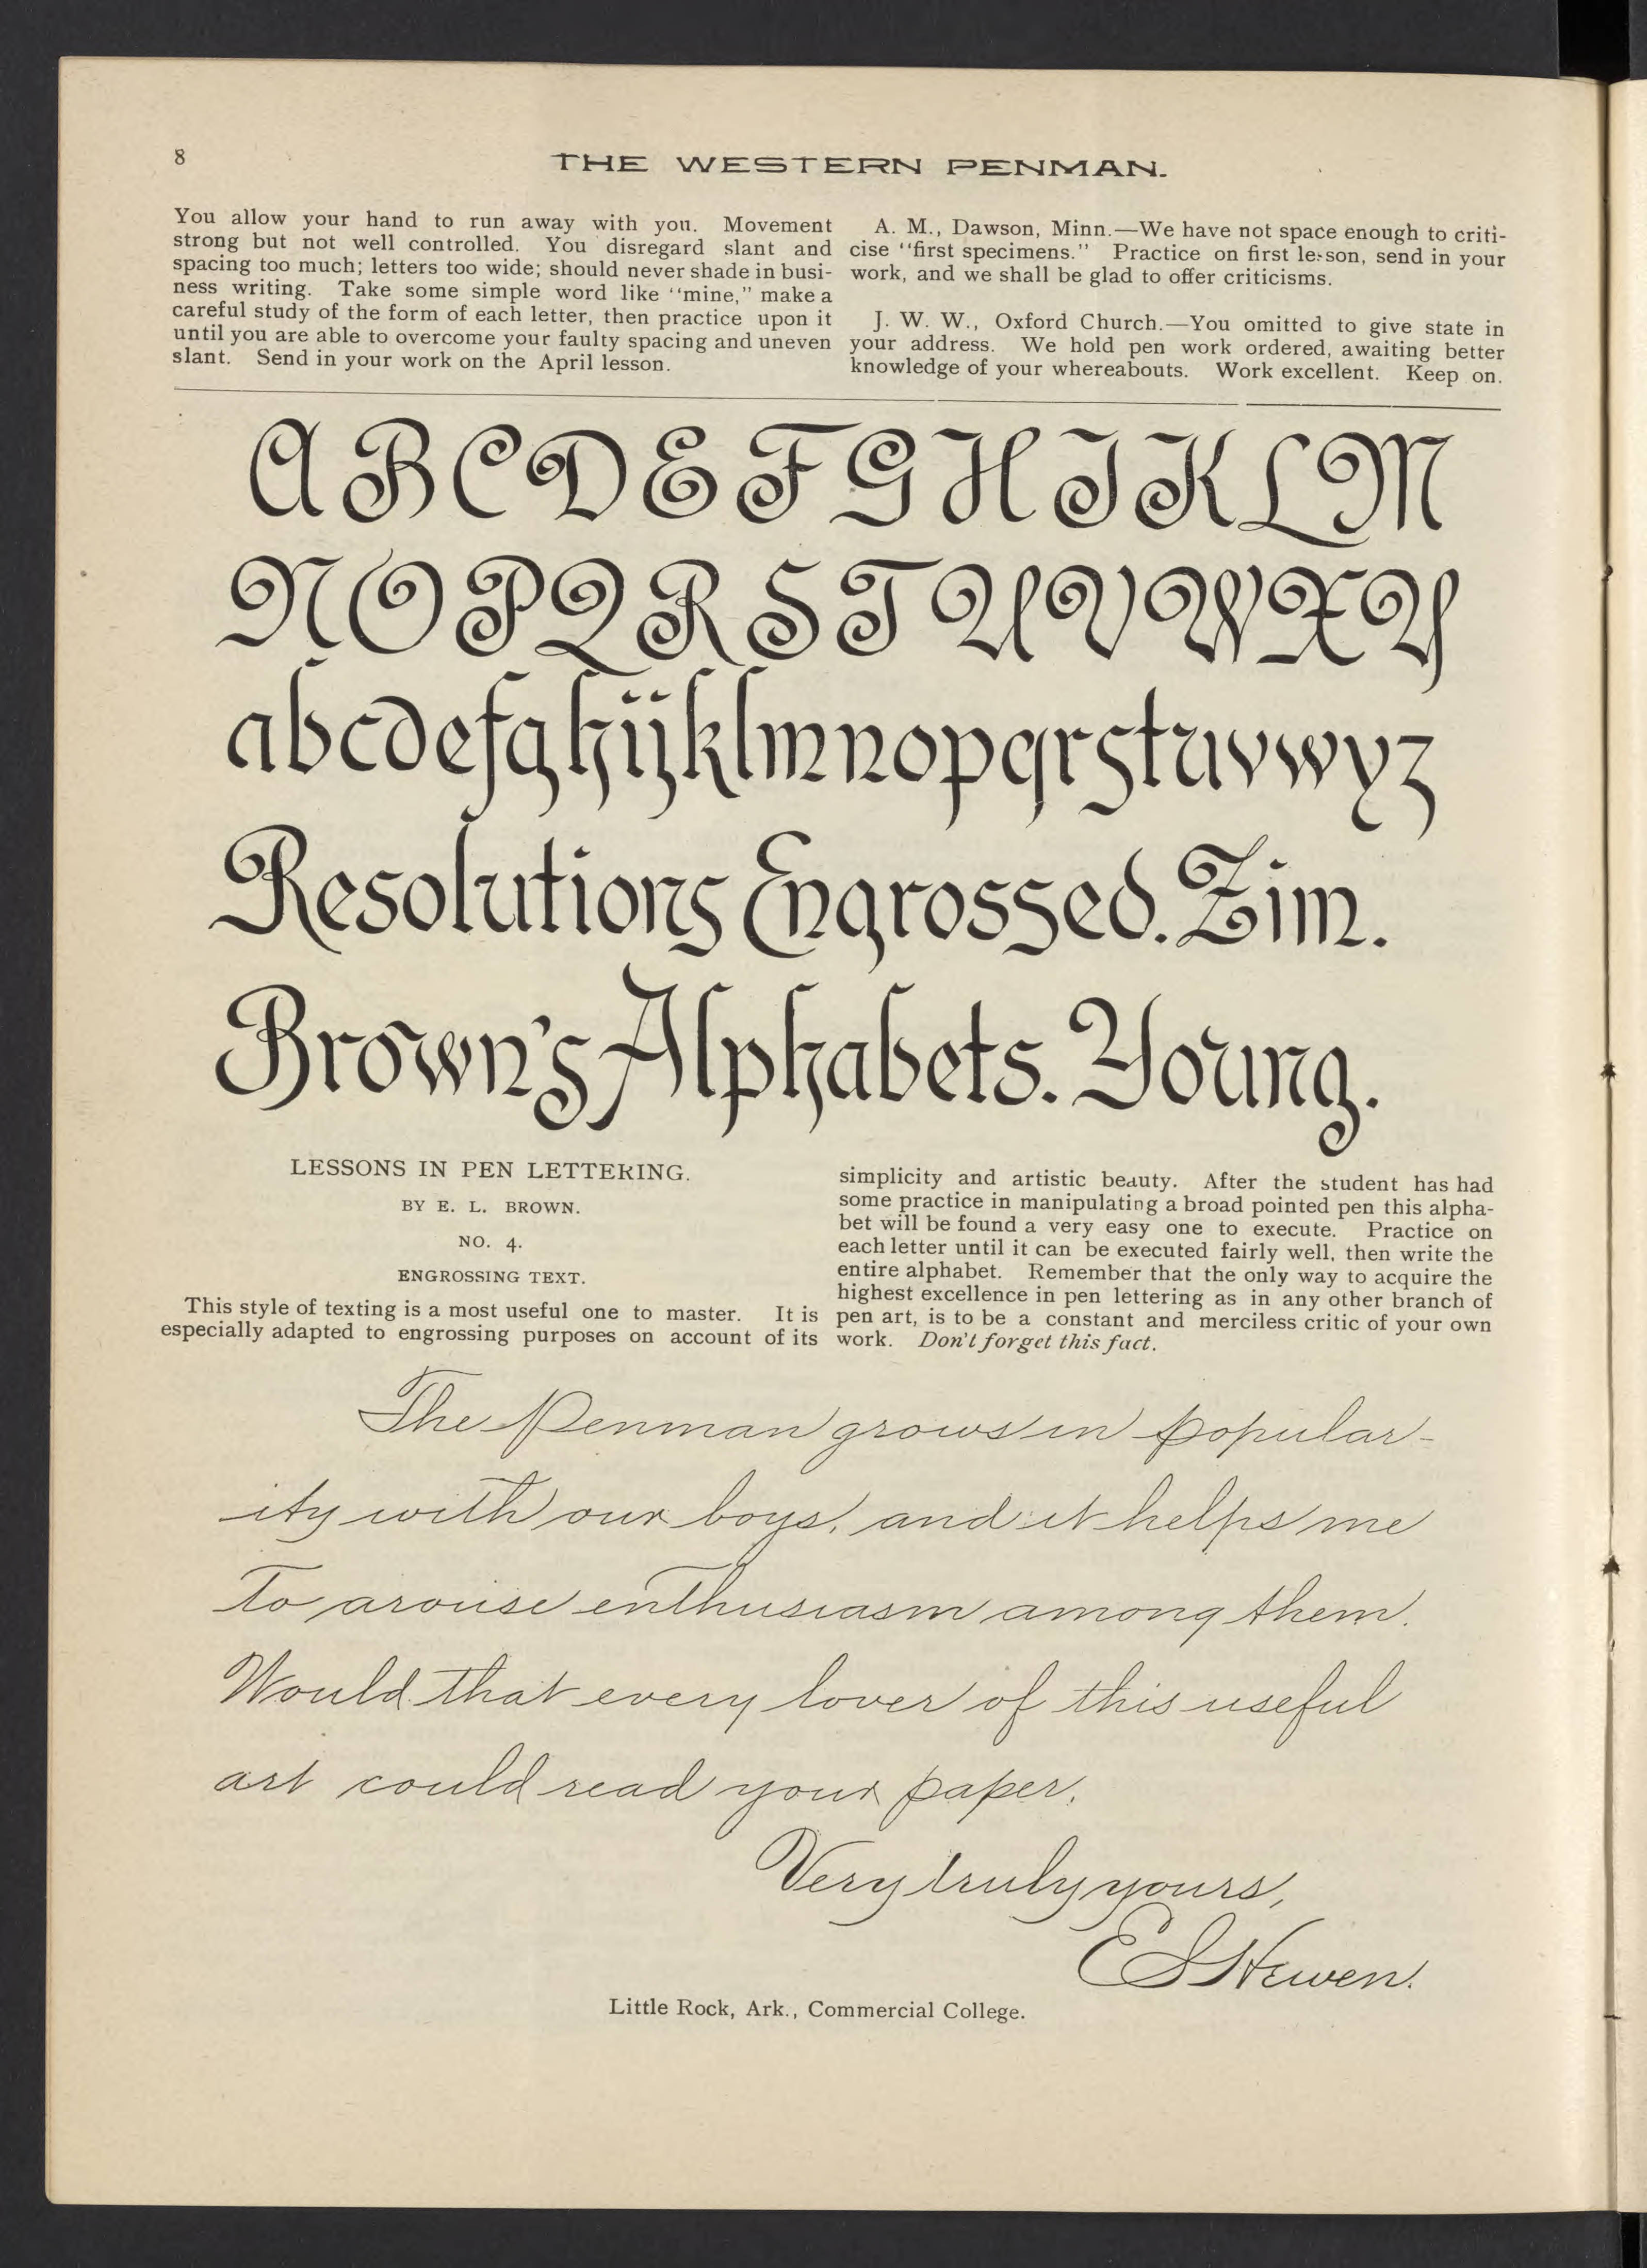 8
THE WESTERN PENMAN.
You allow your hand to run away with you. Movement
strong but not well controlled. You disregard slant and
spacing too much; letters too wide; should never shade in busi-
ness writing. Take some simple word like "mine," make a
careful study of the form of each letter, then practice upon it
until you are able to overcome your faulty spacing and uneven
slant. Send in your work on the April lesson.
A. M., Dawson, Minn.—We have not space enough to criti-
cise "first specimens." Practice on first lesson, send in your
work, and we shall be glad to offer criticisms.
J. W. W., Oxford Church.—You omitted to give state in
your address. We hold pen work ordered, awaiting better
knowledge of your whereabouts. Work excellent. Keep on.
A B C D E F G H I K L M
N O P Q R S T U V W X Y
a b c d e f g h i j k l m n o p q r s t u v w y z
Resolutions Engrossed. Zim.
Brown's Alphabets. Young.
LESSONS IN PEN LETTERING.
BY E. L. BROWN.
NO. 4.
ENGROSSING TEXT.
This style of texting is a most useful one to master. It is
especially adapted to engrossing purposes on account of its
simplicity and artistic beauty. After the student has had
some practice in manipulating a broad pointed pen this alpha-
bet will be found a very easy one to execute. Practice on
each letter until it can be executed fairly well, then write the
entire alphabet. Remember that the only way to acquire the
highest excellence in pen lettering as in any other branch of
pen art, is to be a constant and merciless critic of your own
work. Don't forget this fact.
The Penman grows in popular-
ity with our boys, and it helps me
to arouse enthusiasm among them.
Would that every lover of this useful
art could read your paper.
Very truly yours,
E S Hewen.
Little Rock, Ark., Commercial College.